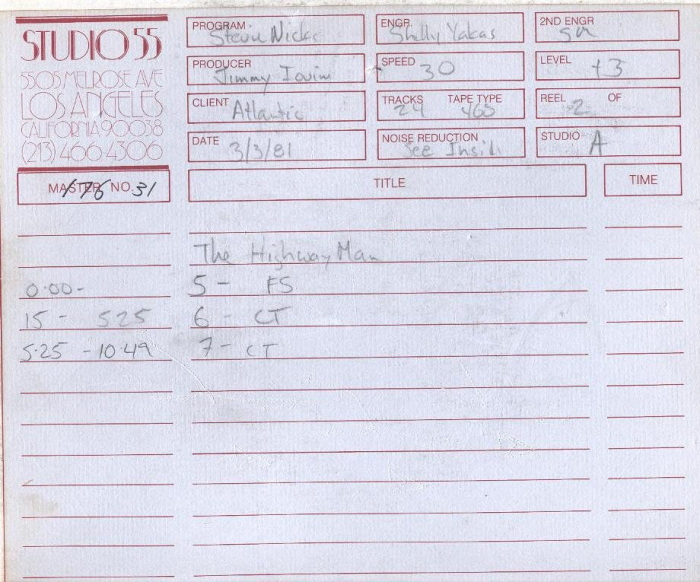 STUDIO 55
5505 MELROSE AVE
LOS ANGELES
CALIFORNIA 90038
(213) 466-4306
PROGRAM Stevie Nicks
ENGR. Shelly Yakas
2ND ENGR
PRODUCER Jimmy Iovine
SPEED 30
LEVEL +3
CLIENT Atlantic
TRACKS 24 TAPE TYPE 465
REEL 2 OF
DATE 3/3/81
NOISE REDUCTION See Inside
STUDIO A
MASTER NO. 31
TITLE
TIME
The Highway Man
0.00- 5 - FS
15 - 525 6 - CT
5.25 - 10.49 7 - CT